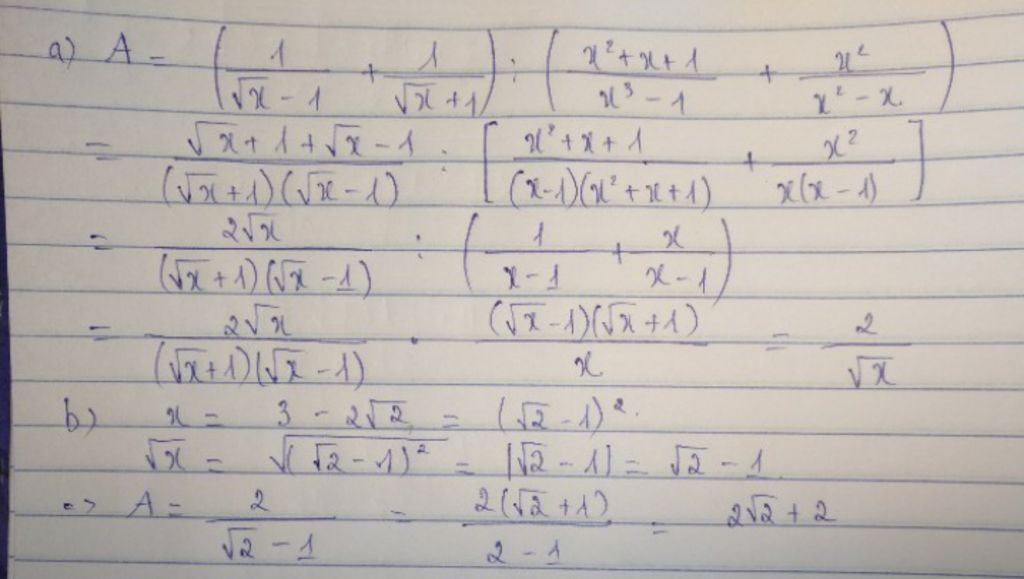 a) A = (1/(√x - 1) + 1/(√x + 1)) : ((x² + x + 1)/(x³ - 1) + x²/(x² - x))
= (√x + 1 + √x - 1)/((√x + 1)(√x - 1)) : [(x² + x + 1)/((x-1)(x² + x + 1)) + x²/(x(x - 1))]
= 2√x/((√x + 1)(√x - 1)) : (1/(x - 1) + x/(x - 1))
= 2√x/((√x + 1)(√x - 1)) . ((√x - 1)(√x + 1))/x = 2/√x
b) x = 3 - 2√2 = (√2 - 1)².
√x = √((√2 - 1)²) = |√2 - 1| = √2 - 1
=> A = 2/(√2 - 1) = 2(√2 + 1)/(2 - 1) = 2√2 + 2